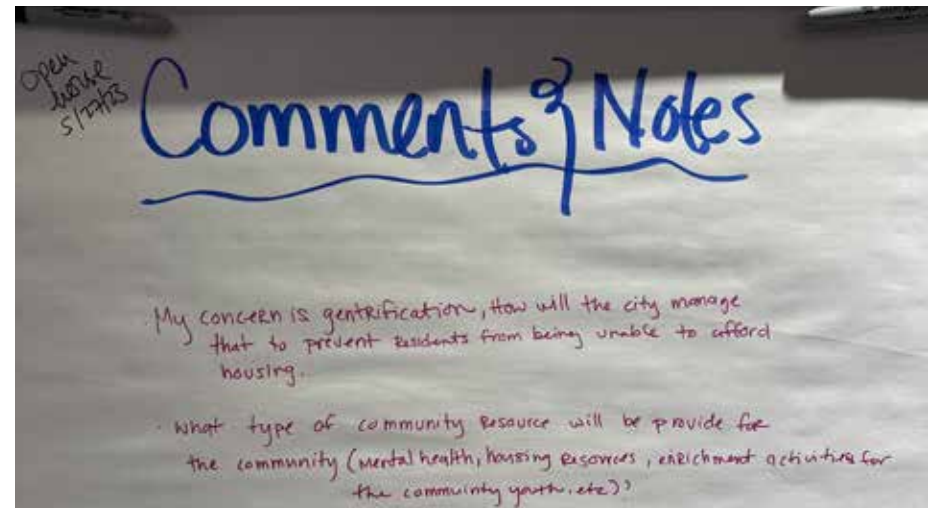 open
house
5/27/23
Comments & Notes
· My concern is gentrification, How will the city manage
that to prevent residents from being unable to afford
housing..
· What type of community resource will be provide for
the community (Mental health, housing resources, enrichment activities for
the commuinty youth, etc)?